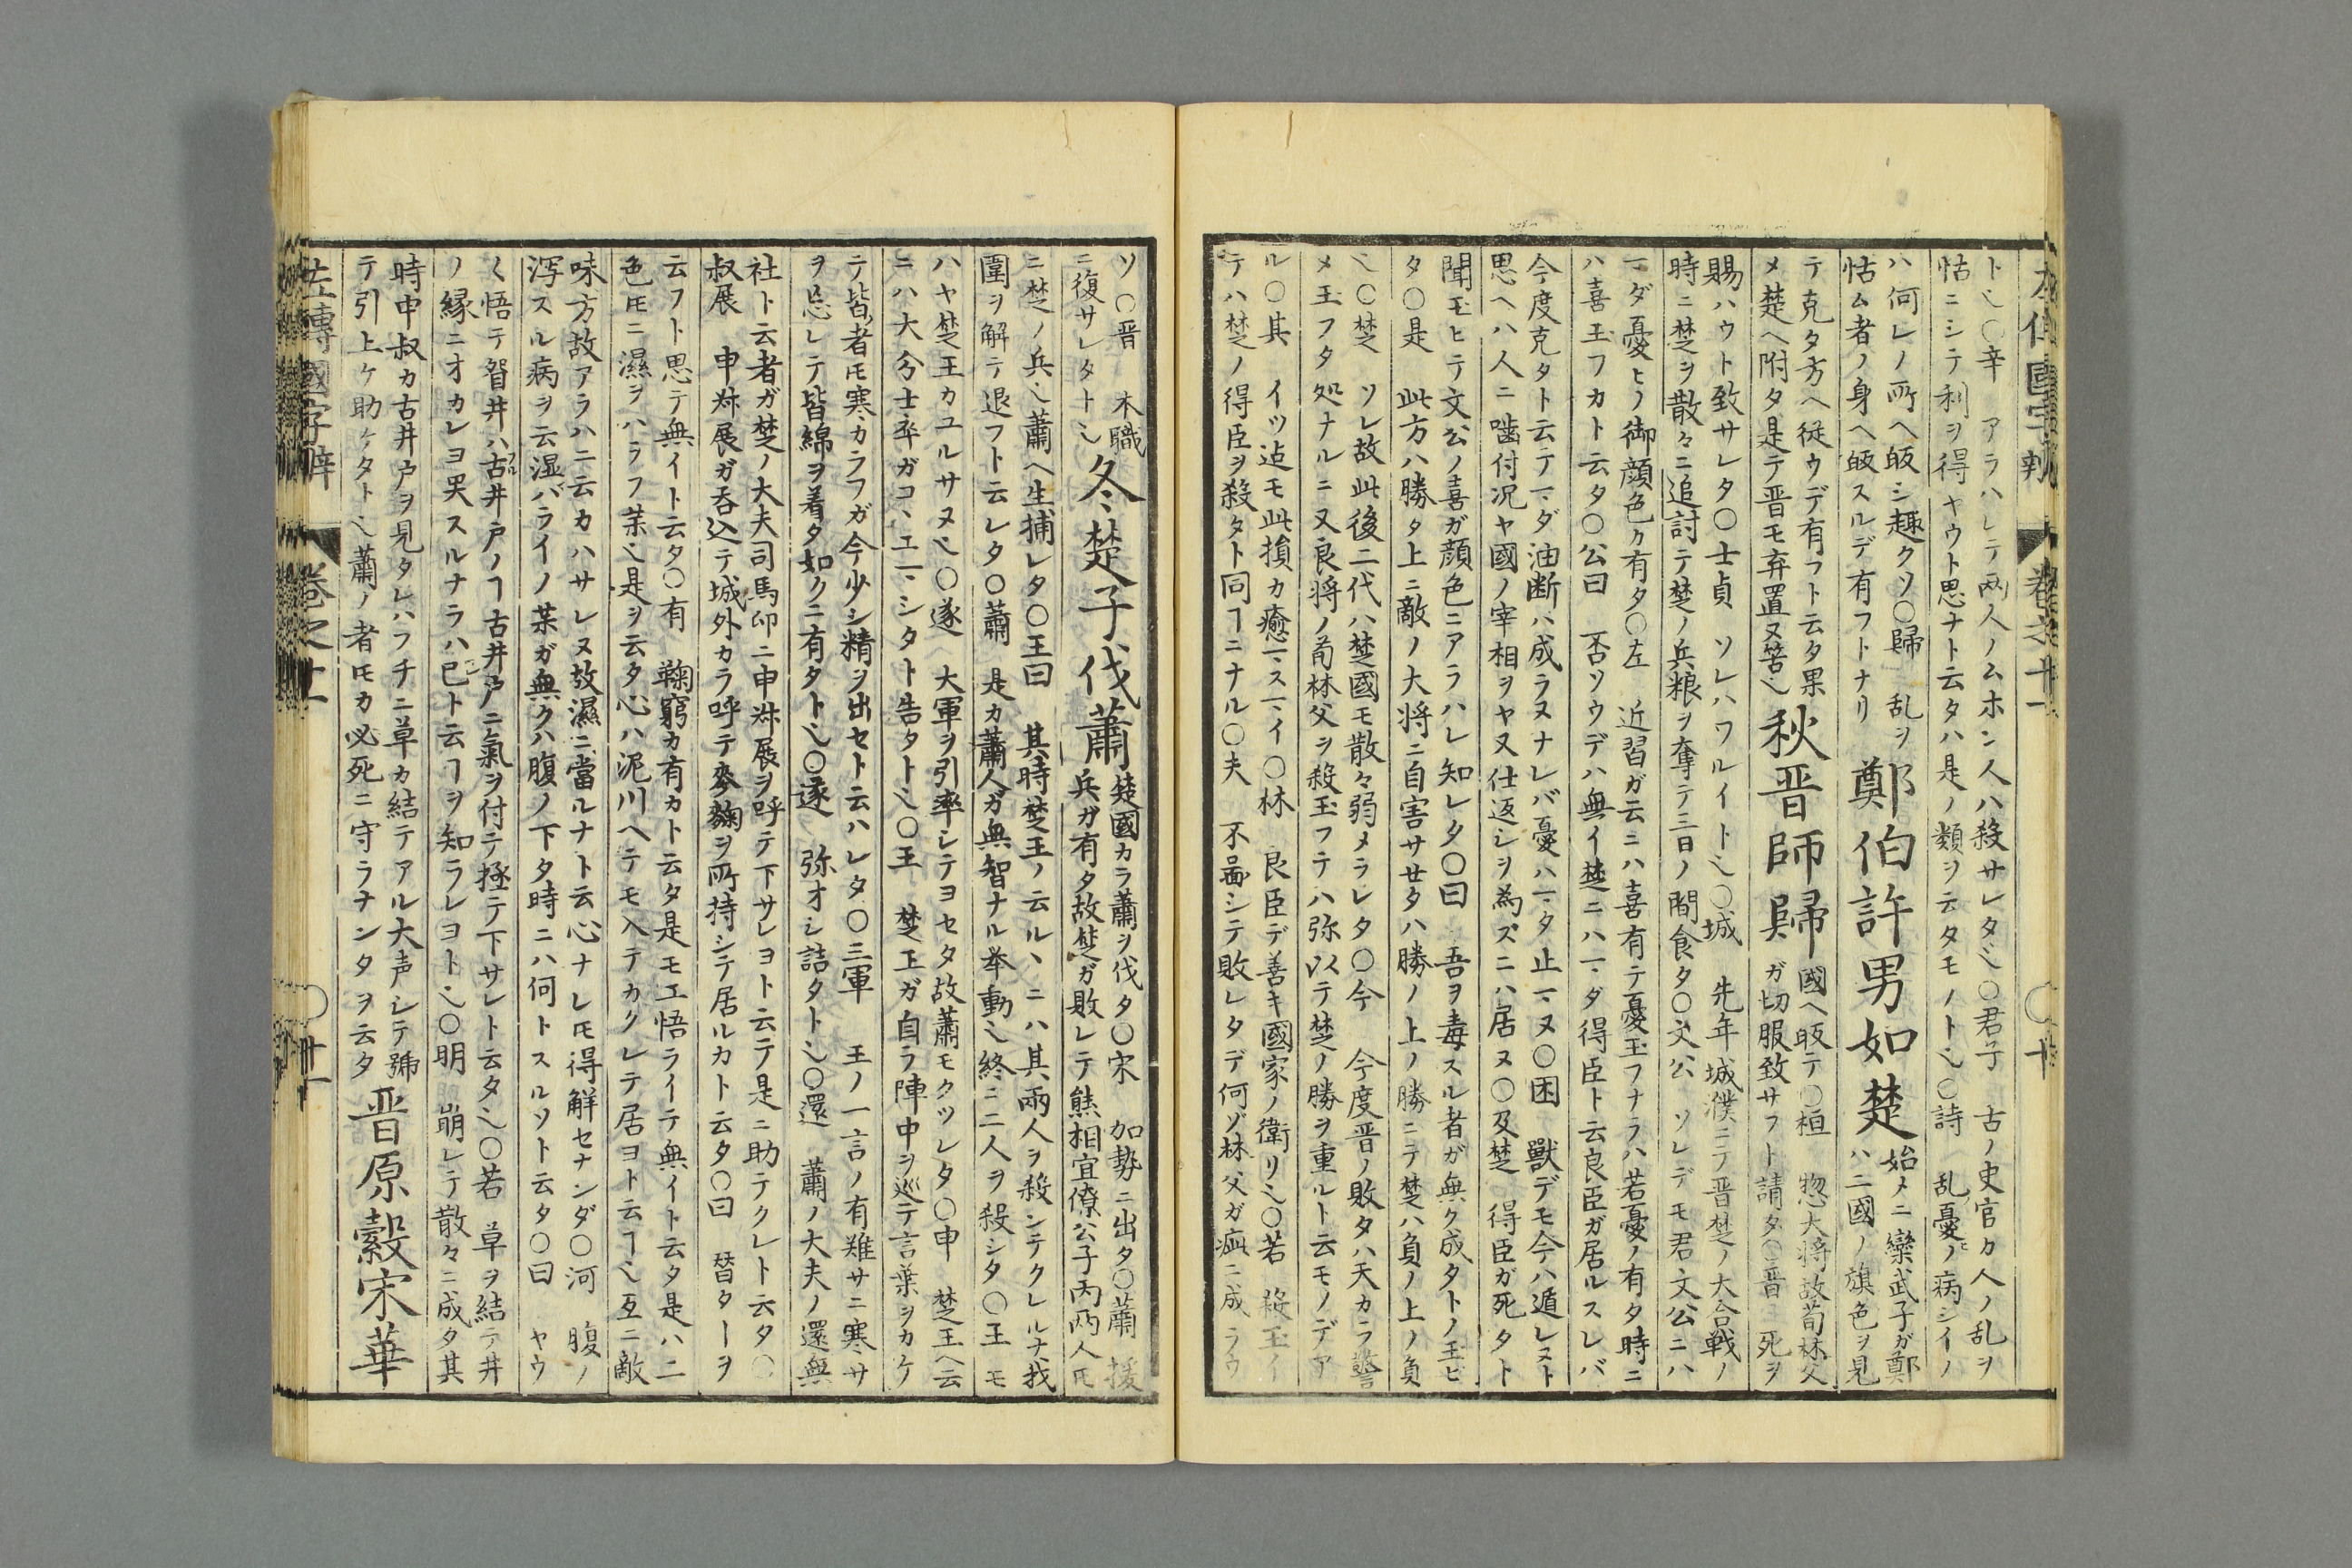 ト〻〇辛　アラハレテ兩人ノムホン人ハ殺サレタ〻〇君子　古ノ史官カ人ノ乱ヲ
怙ニシテ利ヲ得ヤウト思ナト云タハ是ノ類ヲ云タモノト〻〇詩　乱憂ノ病シイノ
ハ何レノ所ヘ皈シ趣クソ〇歸　乱ヲ
怙ム者ノ身ヘ皈スルデ有フトナリ
鄭伯許男如楚
始メニ欒武子ガ鄭
ハ二國ノ旗色ヲ見
テ克タ方ヘ従ウデ有フト云タ果
メ楚ヘ附タ是テ晋モ弃置ヌ筈〻
秋晋師歸
國ヘ皈テ〇桓　惣大将故荀林父
ガ切服致サフト請タ〇晋　死ヲ
賜ハウト致サレタ〇士貞　ソレハワルイト〻〇城　先年城濮ニテ晋楚ノ大合戰ノ
時ニ楚ヲ散々ニ追討テ楚ノ兵粮ヲ奪テ三日ノ間食タ〇文公　ソレデモ君文公ニハ
マダ憂ヒノ御顔色ガ有タ〇左　近習ガ云ニハ喜有テ憂玉フナラハ若憂ノ有タ時ニ
ハ喜玉フカト云タ〇公曰　否ソウデハ無イ楚ニハマダ得臣ト云良臣ガ居ルスレバ
今度克タト云テマダ油断ハ成ラヌナレバ憂ハマタ止マヌ〇困　獸デモ今ハ遁レヌト
思ヘハ人ニ噛付況ヤ國ノ宰相ヲヤ又仕返シヲ為ズニハ居ヌ〇及楚　得臣ガ死タト
聞玉ヒテ文公ノ喜ガ顔色ニアラハレ知レタ〇曰　吾ヲ毒スル者ガ無ク成タトノ玉ヒ
タ〇是　此方ハ勝タ上ニ敵ノ大将ニ自害サセタハ勝ノ上ノ勝ニテ楚ハ負ノ上ノ負
〻〇楚　ソレ故此後二代ハ楚國モ散々弱メラレタ〇今　今度晋ノ敗タハ天カラ警
メ玉フタ処ナルニ又良将ノ荀林父ヲ殺玉フテハ弥以テ楚ノ勝ヲ重ルト云モノデア
ル〇其　イツ迠モ此損カ癒マスマイ〇林　良臣デ善キ國家ノ衛リ〻〇若　殺玉イ
テハ楚ノ得臣ヲ殺タト同ヿニナル〇夫　不圖シテ敗レタデ何ゾ林父ガ疵ニ成ラウ
ソ〇晋　本職
ニ復サレタト〻
冬楚子伐蕭
楚國カラ蕭ヲ伐タ〇宋　加勢ニ出タ〇蕭　援
兵ガ有タ故楚ガ敗レテ熊相宜僚公子丙两人𪜈
ニ楚ノ兵〻蕭ヘ生捕レタ〇王曰　其時楚王ノ云ルヽニハ其兩人ヲ殺ンテクレルナ我
圍ヲ解テ退フト云レタ〇蕭　是カ蕭人ガ無智ナル举動〻終ニ二人ヲ殺シタ〇王　モ
ハヤ楚王カユルサヌ〻〇遂　大軍ヲ引率シテヨセタ故蕭モクツレタ〇申　楚王ヘ云
ニハ大分士卒ガコヽエマシタト告タト〻〇王　楚王ガ自ラ陣中ヲ巡テ言葉ヲカケ
テ皆者𪜈寒カラフガ今少シ精ヲ出セト云ハレタ〇三軍　王ノ一言ノ有難サニ寒サ
ヲ忘レテ皆綿ヲ着タ如クニ有タト〻〇遂　弥オシ詰タト〻〇還　蕭ノ大夫ノ還無
社ト云者ガ楚ノ大夫司馬卯ニ申叔展ヲ呼テ下サレヨト云テ是ニ助テクレト云タ〇
叔展　申叔展ガ呑込テ城外カラ呼テ麥麹ヲ所持シテ居ルカト云タ〇曰　替ターヲ
云フト思テ無イト云タ〇有　鞠窮カ有カト云タ是モエ悟ライテ無イト云タ是ハ二
色𪜈ニ濕ヲハラフ茱〻是ヲ云タ心ハ泥川ヘテモ入テカクレテ居ヨト云ヿ〻互ニ敵
味方故アラハニ云カハサレヌ故濕ニ當ルナト云心ナレ𪜈得觧セナンダ〇河　腹ノ
泻スル病ヲ云湿バライノ茱ガ無クハ腹ノ下タ時ニハ何トスルソト云タ〇曰　ヤウ
〱悟テ眢井ハ古井戸ノヿ古井戸ニ氣ヲ付テ拯テ下サレト云タ〻〇若　草ヲ結テ井
ノ縁ニオカレヨ哭スルナラハ已ト云ヿヲ知ラレヨト〻〇明　崩レテ散々ニ成タ其
時申叔カ古井戸ヲ見タレハフチニ草カ結テアル大声シテ號
テ引上ケ助ケタト〻蕭ノ者𪜈カ必死ニ守ラナンタヲ云タ
晋原縠宋華
左傳國字辯　卷之十一　〇廿一